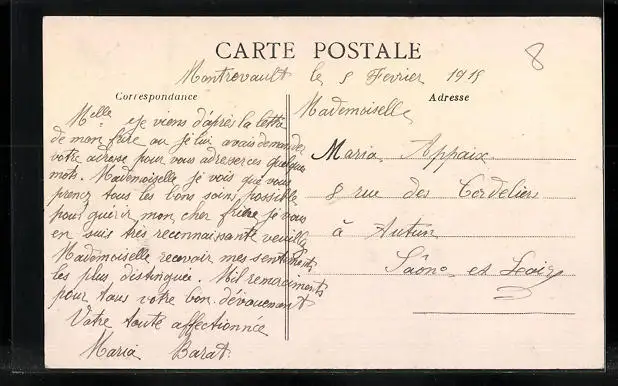 CARTE POSTALE
8
Montrevault le 8 Fevrier 1915
Correspondance
Melle je viens d'après la lettre
de mon frère ou je lui avais demander
votre adresse pour vous adresser ces quelques
mots. Mademoiselle je vois que vous
prenez tous les bons soins possible
pour guérir mon cher frère je vous
en suis très reconnaissante veuillez
Mademoiselle recevoir mes sentiments
les plus distinguée. Mil remerciments
pour tous votre bon dévouement
Votre toute affectionnée
Maria Barat
Adresse
Mademoiselle
Maria Appaix
8 rue des Cordeliers
à Autun
Saône et Loire